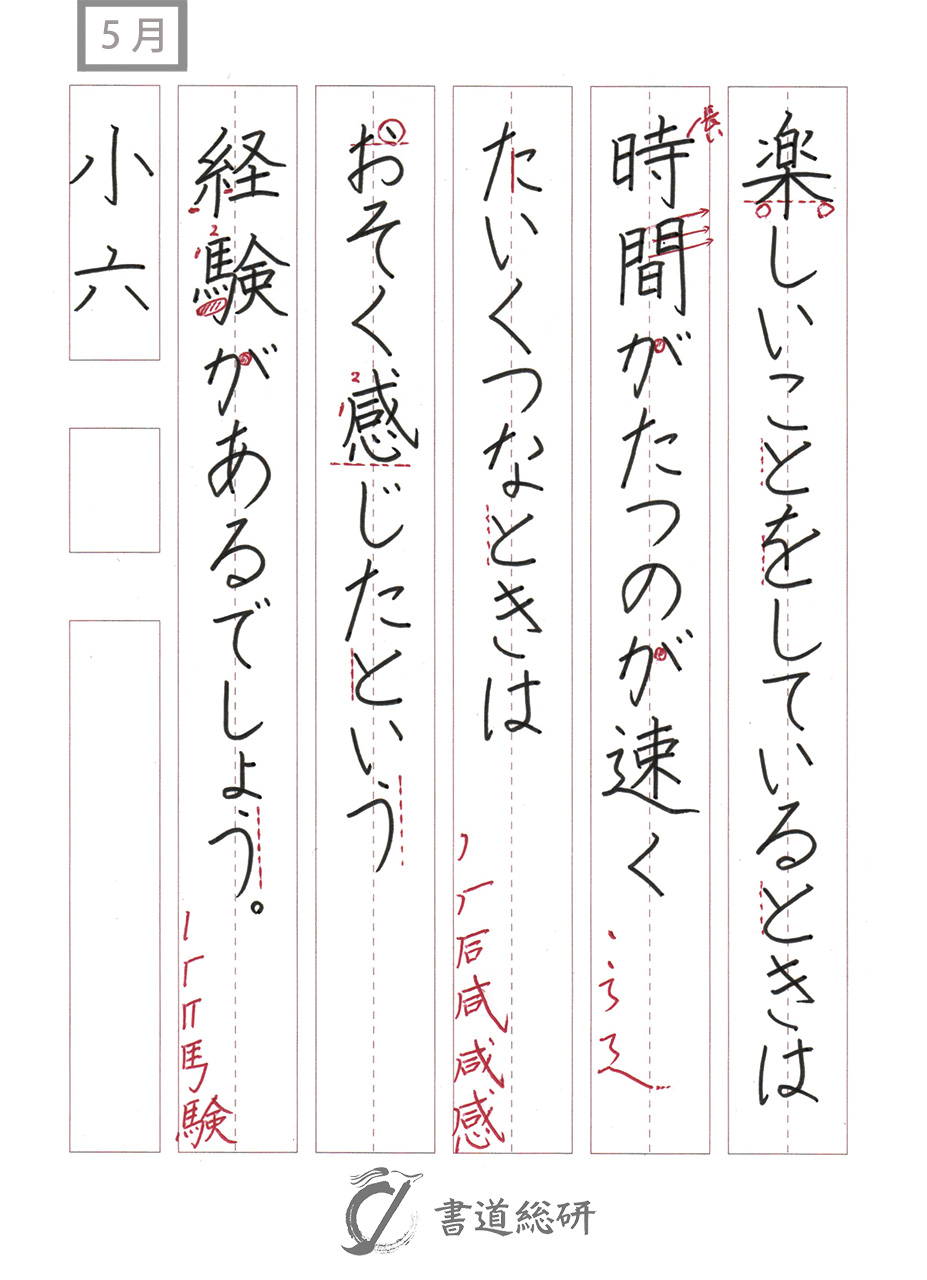 5月
楽しいことをしているときは
時間がたつのが速く
長い
たいくつなときは
おそく感じたという
経験があるでしょう。
小六
1
2
1
2
感
馬
験
書道総研